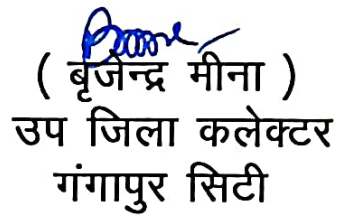 ( बृजेन्द्र मीना )
उप जिला कलेक्टर
गंगापुर सिटी